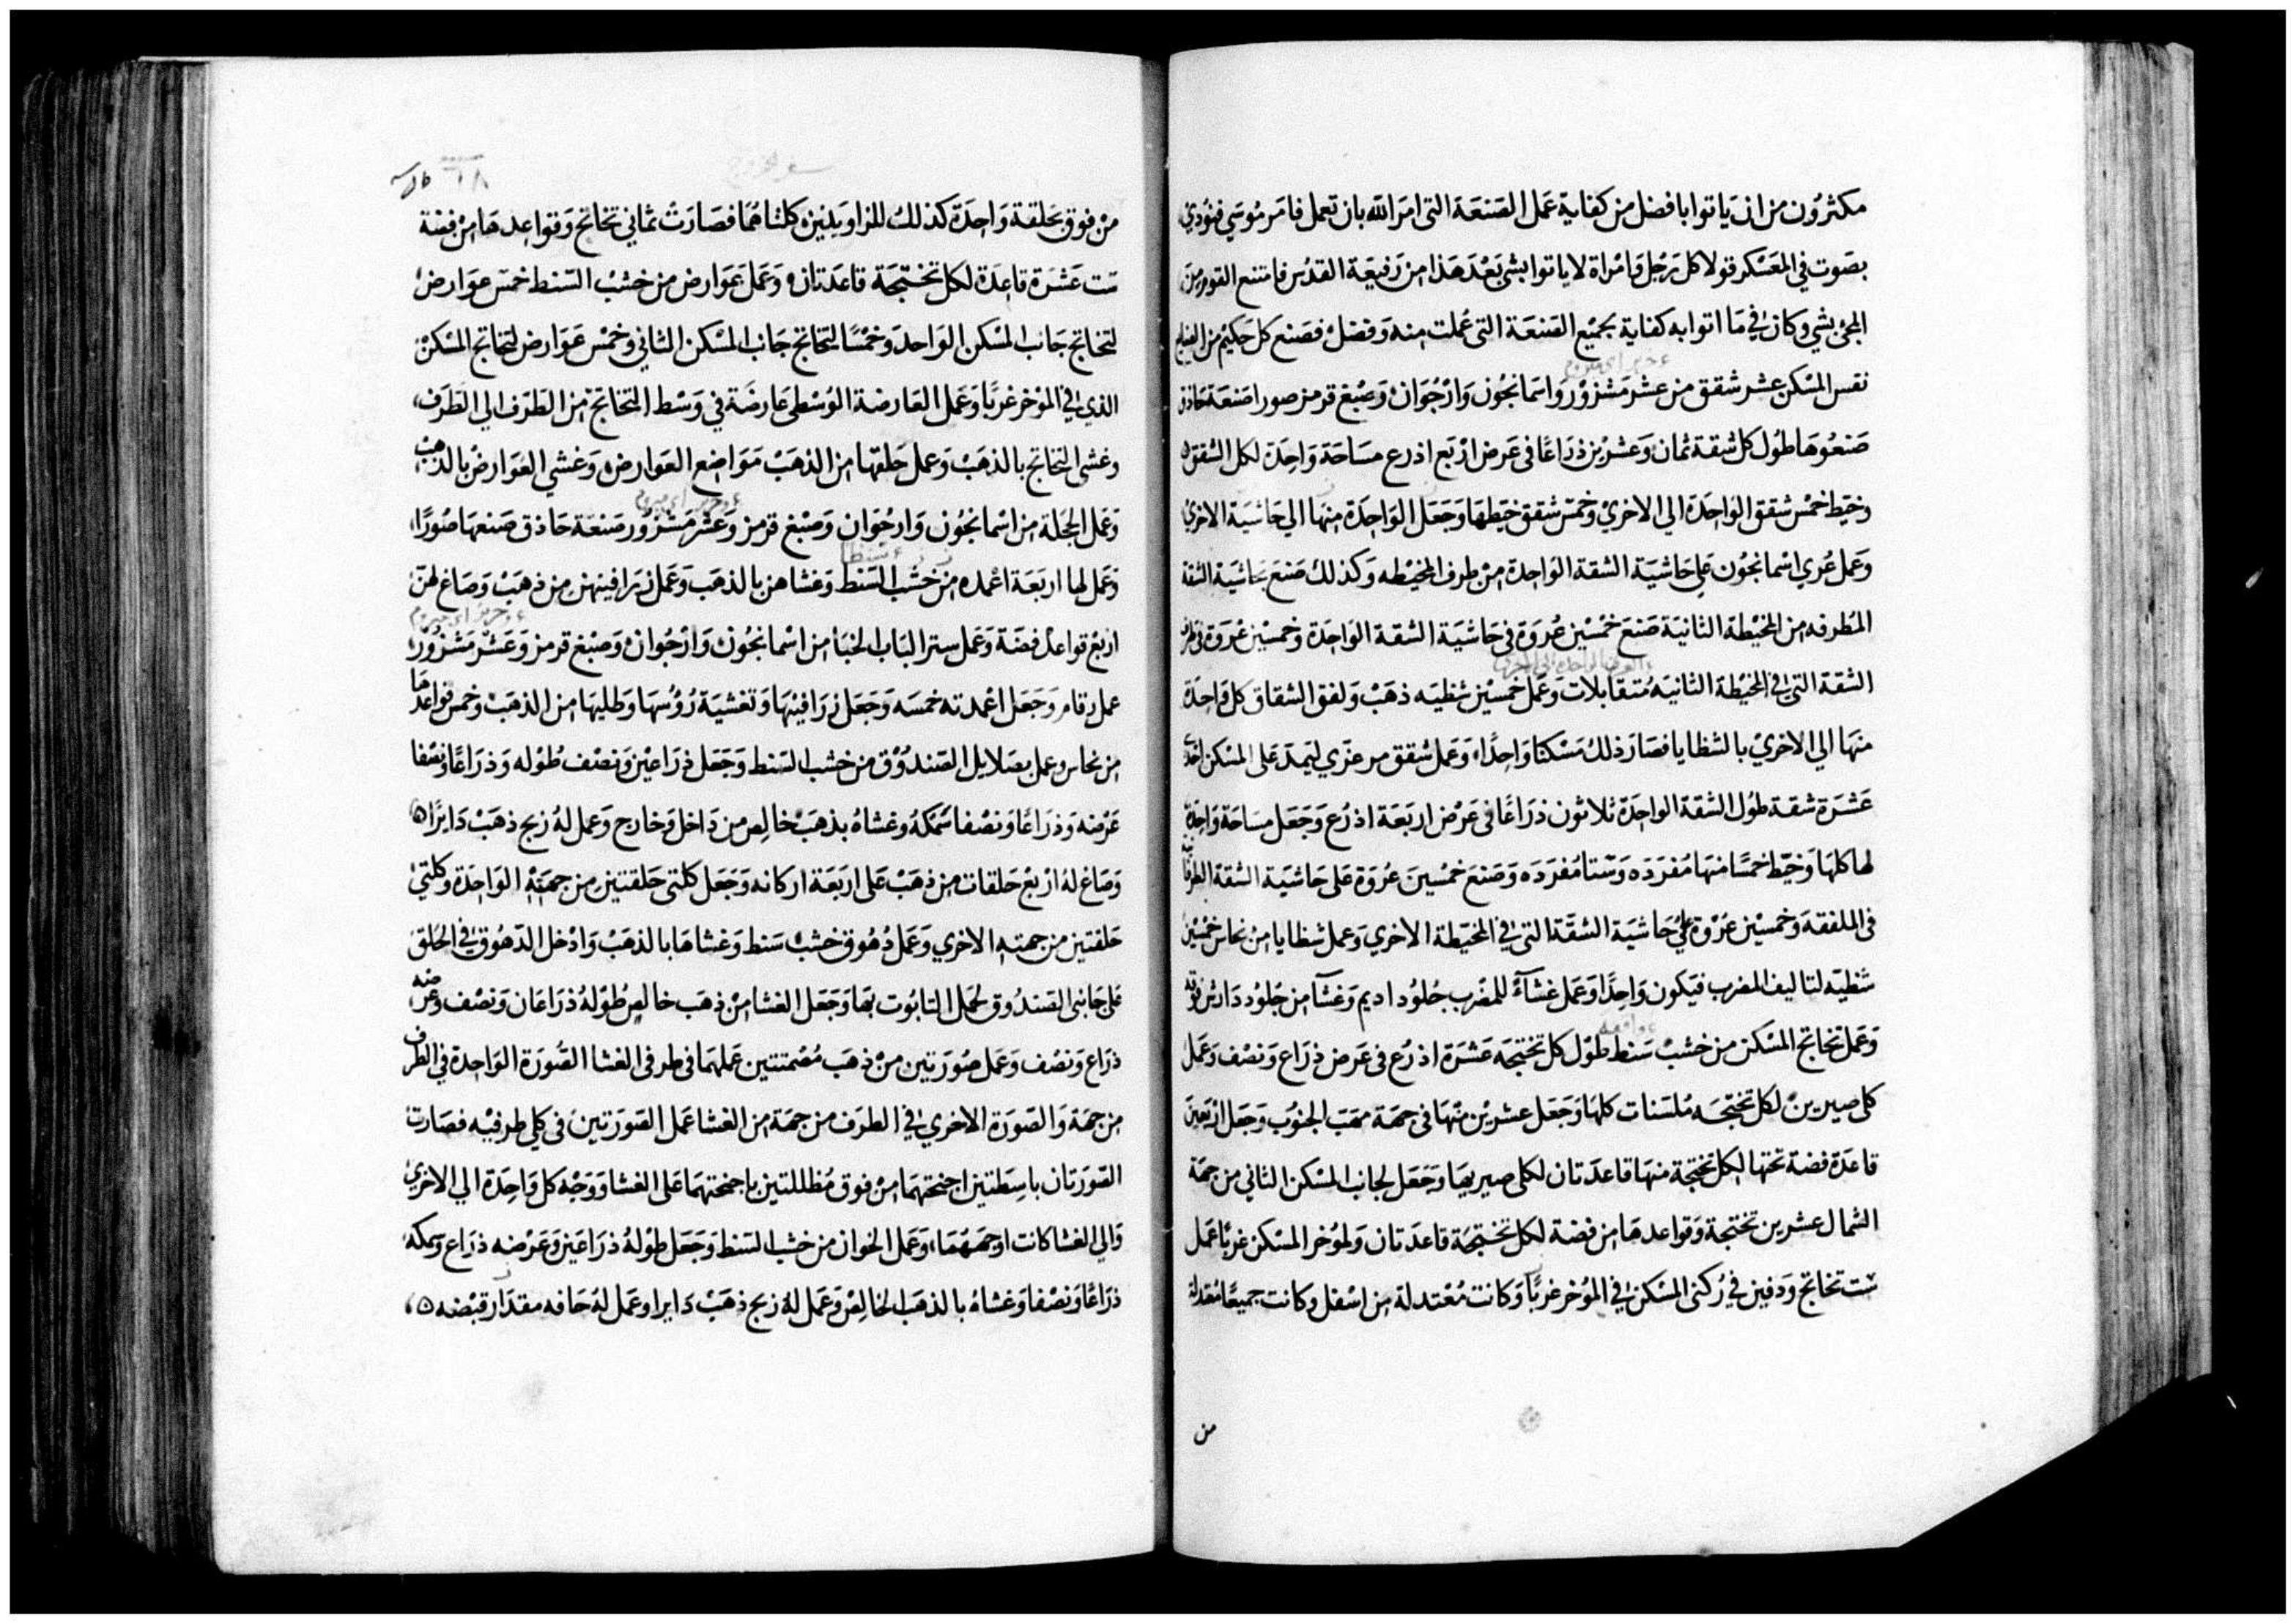 مكثرون من ان ياتوا بافضل من كفاية عمل الصنعة التى امر الله بان تعمل فامر موسي فنودي
بصوت في المعسكر قولا كل رجل وامراة لا ياتوا بشي بعد هذا من رفيعة القدس فامتنع القوم من
المجئ بشي وكان في ما اتوا به كفاية بجميع الصنعة التى عملت منه وفضل فصنع كل حكيم من
نفس المسكن عشر شقق من عشر مشزور واسمانجون وارجوان وصبغ قرمز صورا صنعة حاذق
صنعوها طول كل شقة ثمان وعشرين ذراعا فى عرض اربع اذرع مساحة واحدة لكل الشقق
وخيط خمس شقق الواحدة الى الاخري وخمس شقق خيطها وجعل الواحدة منها الي حاشية الاخري
وعمل عري اسمانجون علي حاشية الشقة الواحدة من طرف المخيطه وكذلك صنع بحاشية الشقة
المطرفه من المخيطة الثانية صنع خمسين عروة فى حاشية الشقة الواحدة وخمسين عروة فى
الشقة التى في المخيطة الثانيه متقابلات وعمل خمسين شظيه ذهب ولفق الشقاق كل واحدة
منها الي الاخري بالشظايا فصار ذلك مسكنا واحدا وعمل شقق مرعزي ليمد على المسكن احدي
عشرة شقة طول الشقة الواحدة ثلاثون ذراعا فى عرض اربعة اذرع وجعل مساحة واحدة
لها كلها وخيط خمسا منها مفردة وستا مفردة وصنع خمسين عروة على حاشية الشقة
فى الملفقة وخمسين عروة علي حاشية الشقة التى في المخيطة الاخري وعمل شظايا من نحاس خمسين
شظيه لتاليف المضرب فيكون واحدا وعمل غشاء للمضرب جلود اديم وغشا من جلود دارش فوقه
وعمل تخاتج المسكن من خشب سنط طول كل تختجه عشرة اذرع فى عرض ذراع ونصف وعمل
كلى صيرين لكل تختجه ملسنات كلها وجعل عشرين منها فى جهة مهب الجنوب وجعل اربعين
قاعدة فضة تحتها لكل تختجة منها قاعدتان لكلى صيريها وجعل لجانب المسكن الثاني من جهة
الشمال عشرين تختجة وقواعدها من فضة لكل تختجة قاعدتان ولموخر المسكن غربا عمل
ست تخاتج ودفين في ركنى المسكن في الموخر غربا وكانت معتدلة من اسفل وكانت جميعا معتدلة
من
من فوق بحلقة واحدة كذلك للزاويتين كلتاهما فصارت ثماني تخاتج وقواعدها من فضة
ست عشرة قاعدة لكل تختجة قاعدتان وعمل عوارض من خشب السنط خمس عوارض
لتخاتج جانب المسكن الواحد وخمسا لتخاتج جانب المسكن الثاني وخمس عوارض لتخاتج المسكن
الذي في الموخر غربا وعمل العارضة الوسطي عارضة في وسط التخاتج من الطرف الي الطرف
وغشى التخاتج بالذهب وعمل حلقها من الذهب مواضع العوارض وغشي العوارض بالذهب
وعمل الحجلة من اسمانجون وارجوان وصبغ قرمز وعشر مشزور صنعة حاذق صنعها صورا
وعمل لها اربعة اعمده من خشب السنط وغشاهن بالذهب وعمل زرافينهن من ذهب وصاغ لهن
اربع قواعد فضة وعمل ستر الباب الخبا من اسمانجون وارجوان وصبغ قرمز وعشر مشزور
عمل رقام وجعل اعمدته خمسه وجعل زرافينها وتغشية رؤسها وطليها من الذهب وخمس قواعدها
من نحاس وعمل بصلايل الصندوق من خشب السنط وجعل ذراعين ونصف طوله وذراعا ونصفا
عرضه وذراعا ونصفا سمكه وغشاه بذهب خالص من داخل وخارج وعمل له زيج ذهب دايرا
وصاغ له اربع حلقات من ذهب على اربعة اركانه وجعل كلتى حلقتين من جهته الواحدة وكلتي
حلقتين من جهته الاخري وعمل دهوق خشب سنط وغشاها بالذهب وادخل الدهوق في الحلق
على جانبى الصندوق لحمل التابوت بها وجعل الغشا من ذهب خالص طوله ذراعان ونصف وعرضه
ذراع ونصف وعمل صورتين من ذهب مصمتتين عملهما فى طرفى الغشا الصورة الواحدة في الطرف
من جهة والصورة الاخري في الطرف من جهة من الغشا عمل الصورتين فى كلي طرفيه فصارت
الصورتان باسطتين اجنحتهما من فوق مظللتين باجنحتهما على الغشا ووجه كل واحدة الي الاخري
والي الغشا كانت اوجههما وعمل الخوان من خشب السنط وجعل طوله ذراعين وعرضه ذراع وسمكه
ذراعا ونصفا وغشاه بالذهب الخالص وعمل له زيج ذهب دايرا وعمل له حافه مقدار قبضه